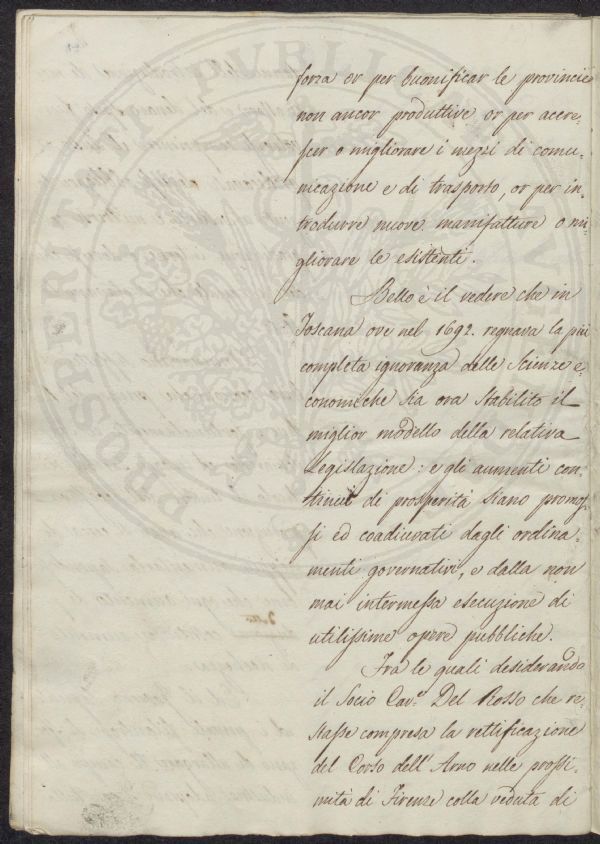 forza or per buonificar le provincie
non ancor produttive, or per accre-
scer o migliorare i mezzi di comu-
nicazione e di trasporto, or per in-
trodurre nuove manifatture o mi-
gliorare le esistenti.
Bello è il vedere che in
Toscana ove nel 1692. regnava la più
completa ignoranza delle Scienze e-
conomiche sia ora stabilito il
miglior modello della relativa
Legislazione: e gli aumenti con-
tinui di prosperità siano promos-
si ed coadiuvati dagli ordina-
menti governativi, e dalla non
mai intermessa esecuzione di
utilissime opere pubbliche.
Fra le quali desiderando
il Socio Cav.e Del Rosso che re-
stasse compresa la rettificazione
del Corso dell'Arno nelle prossi-
mità di Firenze colla veduta di